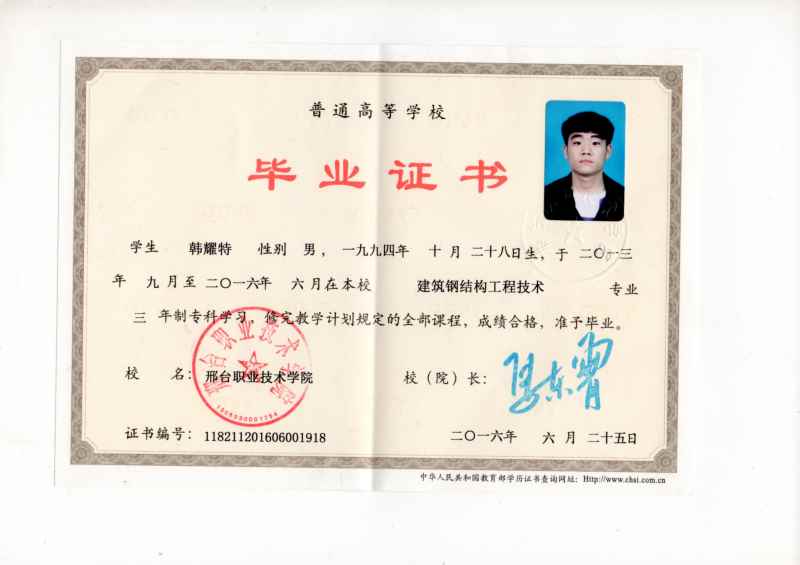 普通高等学校
毕业证书
学生 韩耀特 性别 男，一九九四年 十月二十八日生，于二〇一三
年 九月至二〇一六年 六月在本校 建筑钢结构工程技术 专业
三 年制专科学习，修完教学计划规定的全部课程，成绩合格，准予毕业。
校 名：邢台职业技术学院 校（院）长：
证书编号：118211201606001918 二〇一六年 六月二十五日
中华人民共和国教育部学历证书查询网址：Http://www.chsi.com.cn
邢台职业技术学院